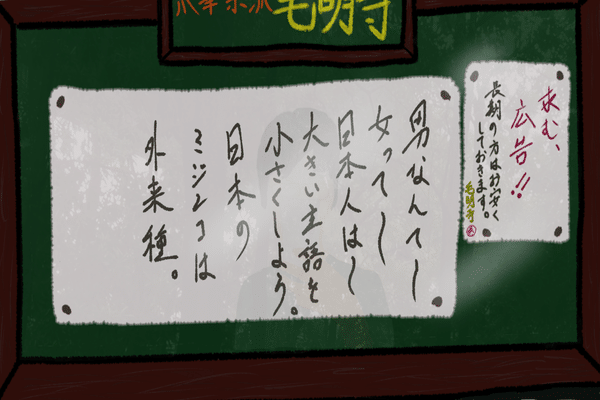 毛明寺
男なんてー
女ってー
日本人はー
大きい主語を
小さくしよう。
日本の
ミジンコは
外来種。
求む、
広告!!
長期の方はお安く
しておきます。
毛明寺